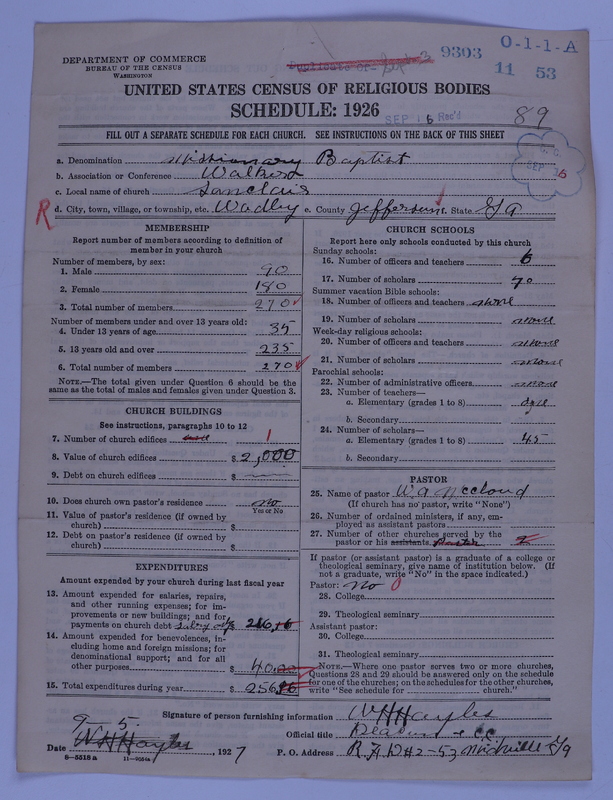 DEPARTMENT OF COMMERCE
BUREAU OF THE CENSUS
WASHINGTON
9303
O-1-1-A
11 53
UNITED STATES CENSUS OF RELIGIOUS BODIES
SCHEDULE: 1926
SEP 16 Rec'd
89
FILL OUT A SEPARATE SCHEDULE FOR EACH CHURCH. SEE INSTRUCTIONS ON THE BACK OF THIS SHEET
a. Denomination Missionary Baptist
b. Association or Conference Walker
c. Local name of church
R d. City, town, village, or township, etc. Wadley e. County Jefferson f. State Ga
MEMBERSHIP
Report number of members according to definition of
member in your church
Number of members, by sex:
1. Male 90
2. Female 180
3. Total number of members 270
Number of members under and over 13 years old:
4. Under 13 years of age 35
5. 13 years old and over 235
6. Total number of members 270
NOTE.—The total given under Question 6 should be the
same as the total of males and females given under Question 3.
CHURCH BUILDINGS
See instructions, paragraphs 10 to 12
7. Number of church edifices 1
8. Value of church edifices $ 2,000
9. Debt on church edifices $
10. Does church own pastor's residence no
Yes or No
11. Value of pastor's residence (if owned by
church) $
12. Debt on pastor's residence (if owned by
church) $
EXPENDITURES
Amount expended by your church during last fiscal year
13. Amount expended for salaries, repairs,
and other running expenses; for im-
provements or new buildings; and for
payments on church debt
14. Amount expended for benevolences, in-
cluding home and foreign missions; for
denominational support; and for all
other purposes $ 40.00
15. Total expenditures during year $
CHURCH SCHOOLS
Report here only schools conducted by this church
Sunday schools:
16. Number of officers and teachers 6
17. Number of scholars 70
Summer vacation Bible schools:
18. Number of officers and teachers none
19. Number of scholars none
Week-day religious schools:
20. Number of officers and teachers none
21. Number of scholars none
Parochial schools:
22. Number of administrative officers none
23. Number of teachers—
a. Elementary (grades 1 to 8)
b. Secondary
24. Number of scholars—
a. Elementary (grades 1 to 8) 45
b. Secondary
PASTOR
25. Name of pastor W. A. McCloud
(If church has no pastor, write "None")
26. Number of ordained ministers, if any, em-
ployed as assistant pastors
27. Number of other churches served by the
pastor or his assistants
If pastor (or assistant pastor) is a graduate of a college or
theological seminary, give name of institution below. (If
not a graduate, write "No" in the space indicated.)
Pastor: No 0
28. College
29. Theological seminary
Assistant pastor:
30. College
31. Theological seminary
NOTE.—Where one pastor serves two or more churches,
Questions 28 and 29 should be answered only on the schedule
for one of the churches; on the schedules for the other churches,
write "See schedule for church."
Signature of person furnishing information W H Hayles
Official title
Date 9-5, 1927
P. O. Address
8-5518 a